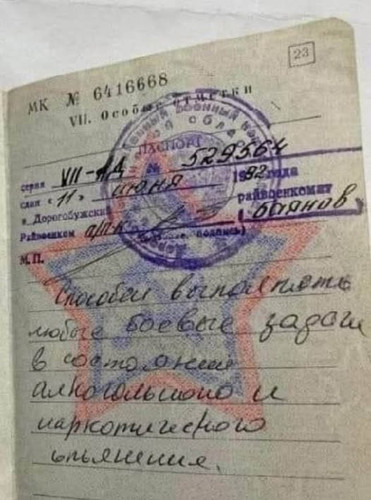 23
МК № 6416668
VII. Особые отметки
ПАСПОРТ
серия VII-АД № 529564
11 июня 1982 года
в Дорогобужский райвоенкомат
Райвоенком (Баянов)
подпись)
М.П.
Способен выполнять
любые боевые задачи
в состоянии
алкогольного и
наркотического
опьянения.